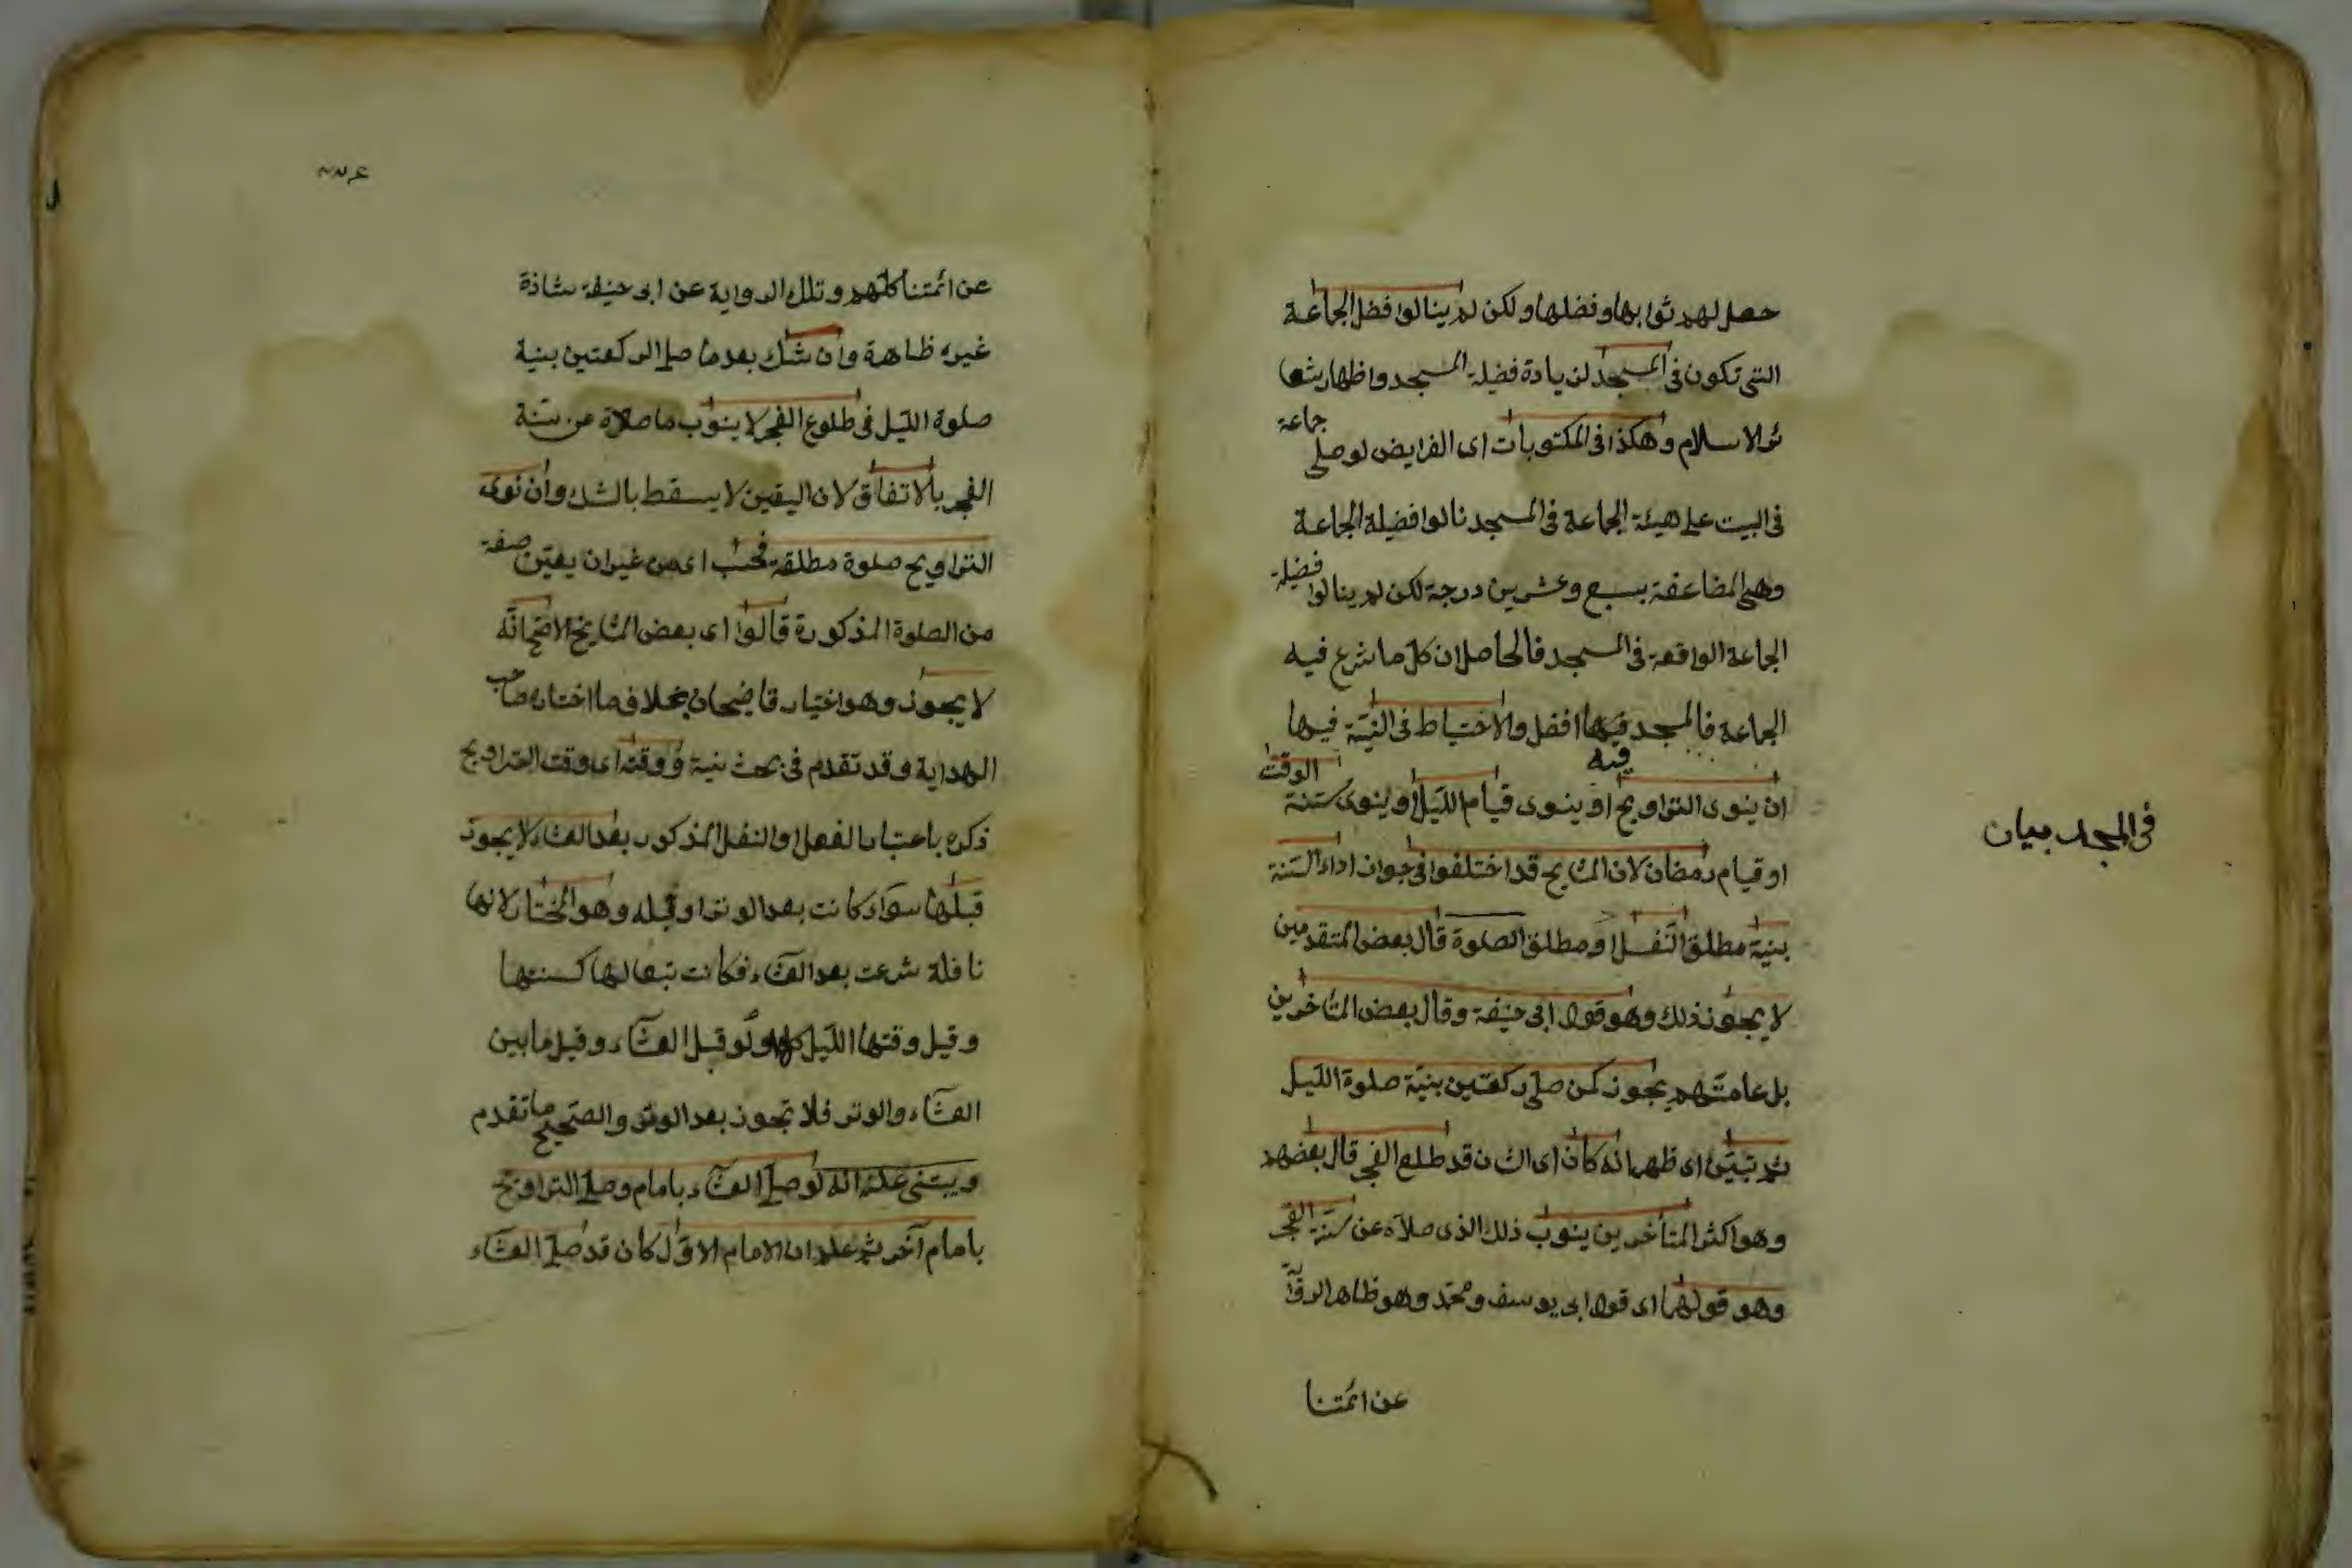 حصل لهم ثوابها وفضلها ولكن لم ينالوا فضل الجماعة
التى تكون فى المسجد لزيادة فضيلة المسجد واظهار شعا
ئر الاسلام وهكذا فى المكتوبات اى الفرايض لو صلى جماعة
فى البيت على هيئة الجماعة فى المسجد نالوا فضيلة الجماعة
وهى المضاعفة بسبع وعشرين درجة لكن لم ينالوا فضيلة
الجماعة الواقعة فى المسجد فالحاصل ان كل ما شرع فيه
الجماعة فالمسجد فيه افضل والاحتياط فى النية فيها
فيه
ان ينوى التراويح او ينوى قيام الليل او ينوى سنة الوقت
او قيام رمضان لان المشايخ قد اختلفوا فى جواز اداء السنة
بنية مطلق النفل او مطلق الصلوة قال بعض المتقدمين
لا يجوز ذلك وهو قول ابى حنيفة وقال بعض المتاخرين
بل عامتهم يجوز كمن صلى ركعتين بنية صلوة الليل
ثم تبين اى ظهر انه كان اى الشان قد طلع الفجر قال بعضهم
وهو اكثر المتأخرين ينوب ذلك الذى صلاه عن سنة الفجر
وهو قولهما اى قول ابى يوسف ومحمد وهو ظاهر الروا
عن ائمتنا
فى المسجد بيان
عن ائمتنا كلهم وتلك الرواية عن ابى حنيفة شاذة
غير ظاهرة وان شك بعد ما صلى الركعتين بنية
صلوة الليل فى طلوع الفجر لا ينوب ما صلاه عن سنة
الفجر بالاتفاق لان اليقين لا يسقط بالشك وان نوى
التراويح صلوة مطلقة فحسب اى من غير ان يعين صفة
من الصلوة المذكورة قالوا اى بعض المشايخ الاصح انه
لا يجوز وهو اختيار قاضيخان بخلاف ما اختاره صاحب
الهداية وقد تقدم فى بحث نية ووقته اى وقت التراويح
ذكره باعتبار الفعل او النفل المذكور بعد العشاء لا يجوز
قبلها سواء كانت بعد الوتر او قبله وهو المختار لانها
نافلة شرعت بعد العشاء فكانت تبعا لها كسنتها
وقيل وقتها الليل كله ولو قبل العشاء وقيل ما بين
العشاء والوتر فلا تجوز بعد الوتر والصحيح ما تقدم
ويبتنى عليه انه لو صلى العشاء بامام وصلى التراويح
بامام آخر ثم علم ان الامام الاول كان قد صلى العشاء